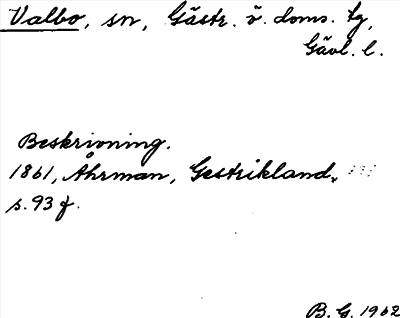 Valbo, sn, Gästr. ö. doms. tg,
Gävl. l.
Beskrivning.
1861, Åhrman, Gestrikland,
s. 93 f.
B. G. 1962